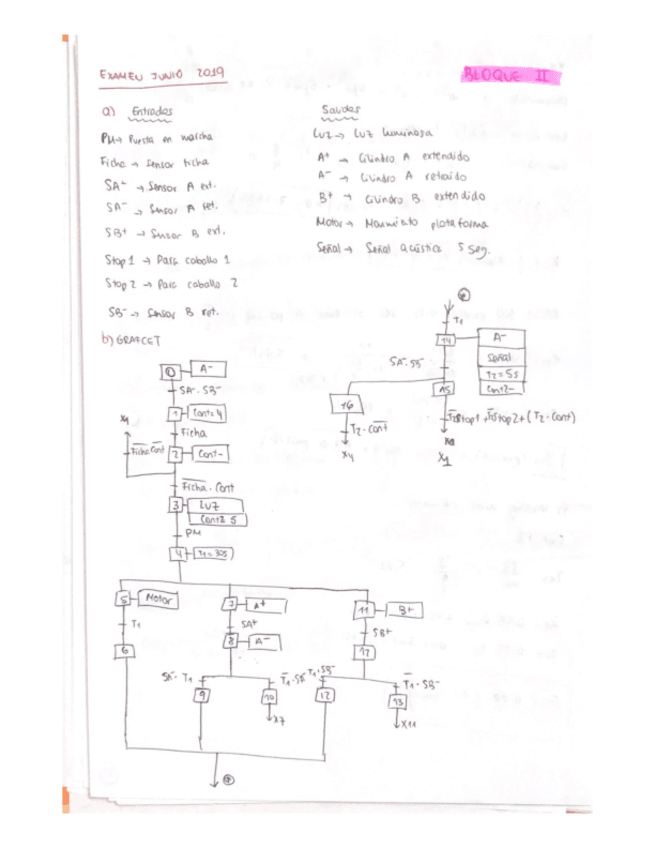 EXAMEN JUNIO 2019
BLOQUE II
a) Entradas
PM → Puesta en marcha
Ficha → Sensor ficha
SA+ → Sensor A ext.
SA- → Sensor A ret.
SB+ → Sensor B ext.
Stop 1 → Para caballo 1
Stop 2 → Para caballo 2
SB- → Sensor B ret.
Salidas
LUZ → Luz luminosa
A+ → Cilindro A extendido
A- → Cilindro A retraido
B+ → Cilindro B extendido
Motor → Movimiento plataforma
Señal → Señal acústica 5 seg.
b) GRAFCET
0 A-
SA-·SB-
1 Cont=4
Ficha
X1
2 Cont-
Ficha·Cont
Ficha·Cont
3 LUZ
Cont2 5
PM
4 T1=30s
5 Motor
T1
6
7 A+
SA+
8 A-
SA-·T1
9
10
X7
11 B+
SB+
12
T1·SB-
12
T1·SB-
13
X11
T1
14 A-
Señal
T2=5s
Cont2-
SA-·SB-
15
16
T2·Cont
X4
X1